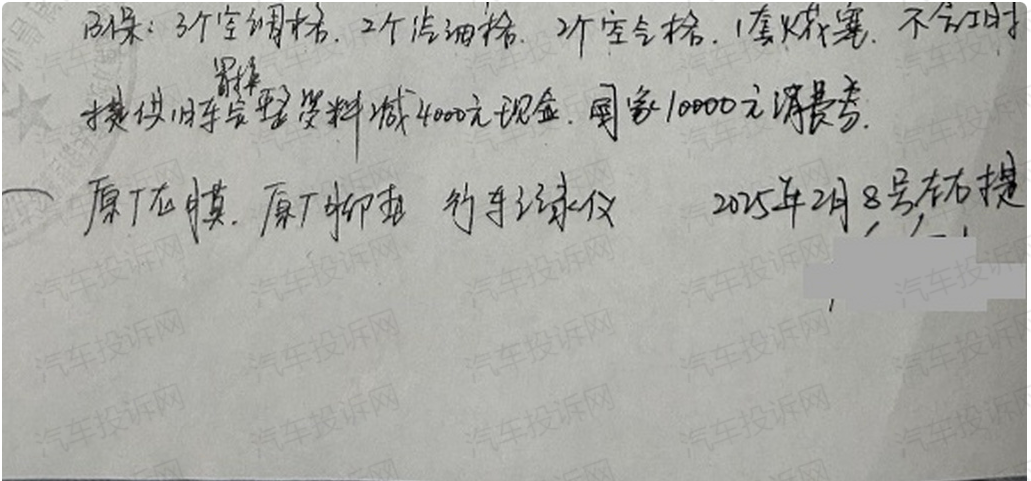 B保：3个空调格．2个汽油格．2个空气格．1套火花塞．不含工时
置换
提供旧车完整资料减4000元现金．国家10000元消费券．
原厂衣膜．原厂脚垫 行车记录仪 2025年2月8号左右提
汽车投诉网